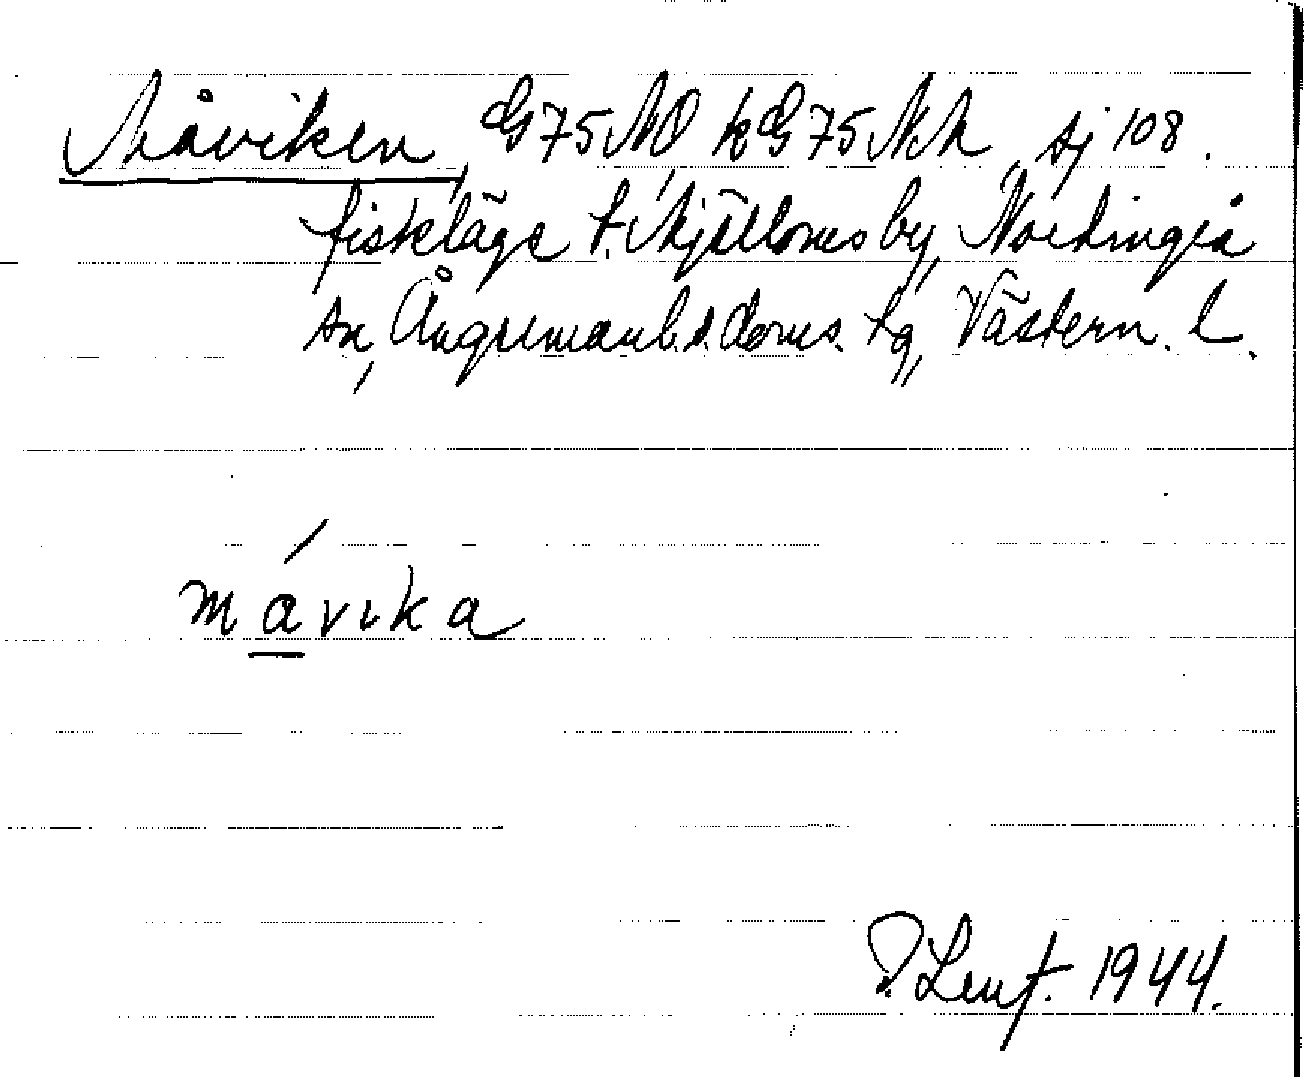 Måviken, G75NO kG75NA, sj 108.
fiskläge t. Mjällomsby, Nordingrå
sn, Ångermanl. s. doms. tg, Västern. l.
måvika
P. Lenf. 1944.